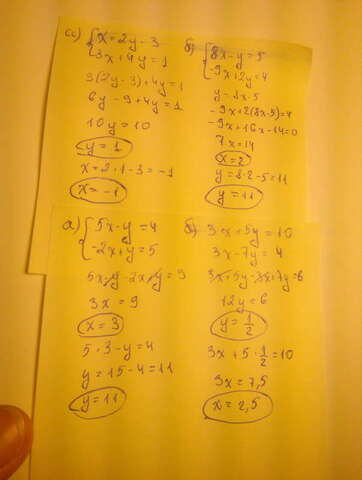 а) { x = 2y - 3
3x + 4y = 1
3(2y - 3) + 4y = 1
6y - 9 + 4y = 1
10y = 10
y = 1
x = 2 · 1 - 3 = -1
x = -1
б) { 8x - y = 5
-9x + 2y = 4
y = 8x - 5
-9x + 2(8x - 5) = 4
-9x + 16x - 14 = 0
7x = 14
x = 2
y = 8 · 2 - 5 = 11
y = 11
а) { 5x - y = 4
-2x + y = 5
5x - y - 2x + y = 9
3x = 9
x = 3
5 · 3 - y = 4
y = 15 - 4 = 11
y = 11
б) 3x + 5y = 10
3x - 7y = 4
3x + 5y - 3x + 7y = 6
12y = 6
y = 1/2
3x + 5 · 1/2 = 10
3x = 7,5
x = 2,5